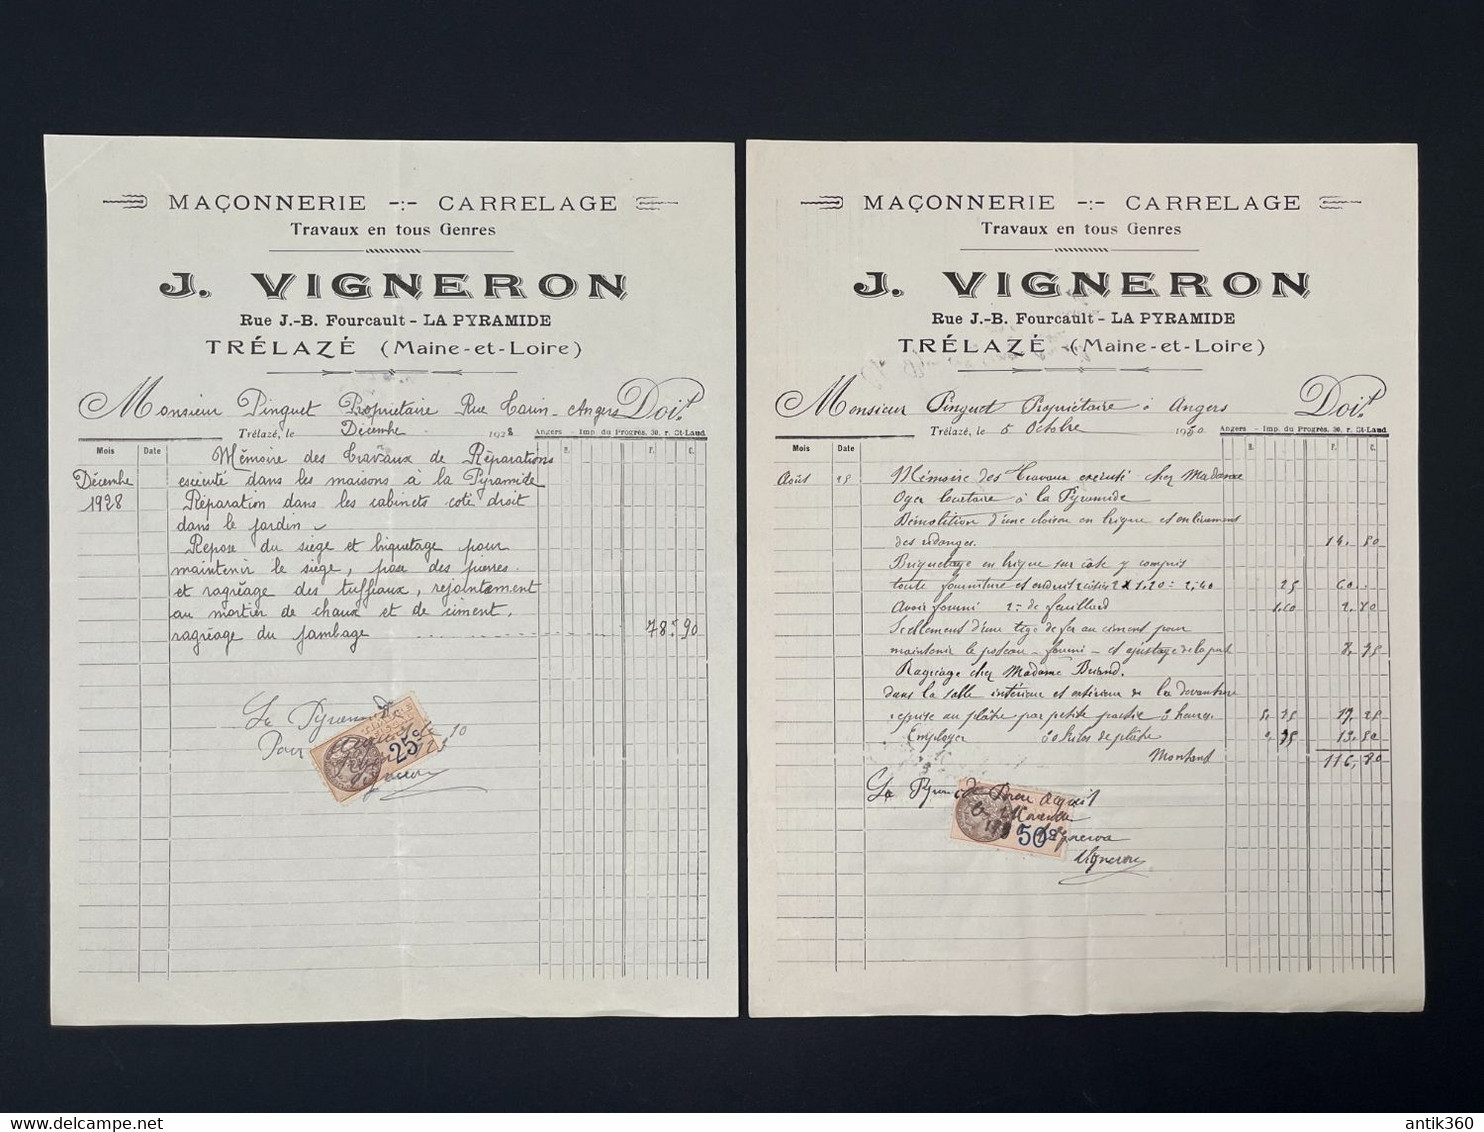 MAÇONNERIE -:- CARRELAGE
Travaux en tous Genres
J. VIGNERON
Rue J.-B. Fourcault - LA PYRAMIDE
TRÉLAZÉ (Maine-et-Loire)
Monsieur Pinguet Propriétaire Rue Angers Doit
Trélazé, le Décembre 1928
Angers - Imp. du Progrès, 30, r. St-Laud
Mois Date F. C.
Mémoire des Travaux de Réparations
Décembre dans les maisons à la Pyramide
1928 Réparation dans les cabinets coté droit
dans le jardin
Repose du siège et briquetage pour
maintenir le siège, pose des pierres
et ragréage des tuffeaux, rejointement
au mortier de chaux et de ciment,
ragréage du jambage 78 F 90
La Pyramide
Pour
25c
MAÇONNERIE -:- CARRELAGE
Travaux en tous Genres
J. VIGNERON
Rue J.-B. Fourcault - LA PYRAMIDE
TRÉLAZÉ (Maine-et-Loire)
Monsieur Pinguet Propriétaire à Angers Doit
Trélazé, le 5 Octobre 1930
Angers - Imp. du Progrès, 30, r. St-Laud
Mois Date F. C.
Août Mémoire des Travaux exécuté chez Madame
Oger locataire à la Pyramide
Démolition d'une cloison en brique et enlèvement
des vidanges. 14, 80
Briquetage en brique sur côté y compris
toute fourniture et enduit 2 x 1,20 = 2,40 25 60
Avoir fourni 2 m de feuillard
Scellement d'une tige de fer au ciment pour
maintenir le poteau fourni et ajustage de la porte
Ragréage chez Madame
dans la salle intérieur et extérieur de la devanture
reprise au plâtre par petite partie 3 heures 5, 75 17, 25
Employer kilos de plâtre 13, 80
Montant 116, 80
La Pyramide Pour Acquit
50c
Vigneron